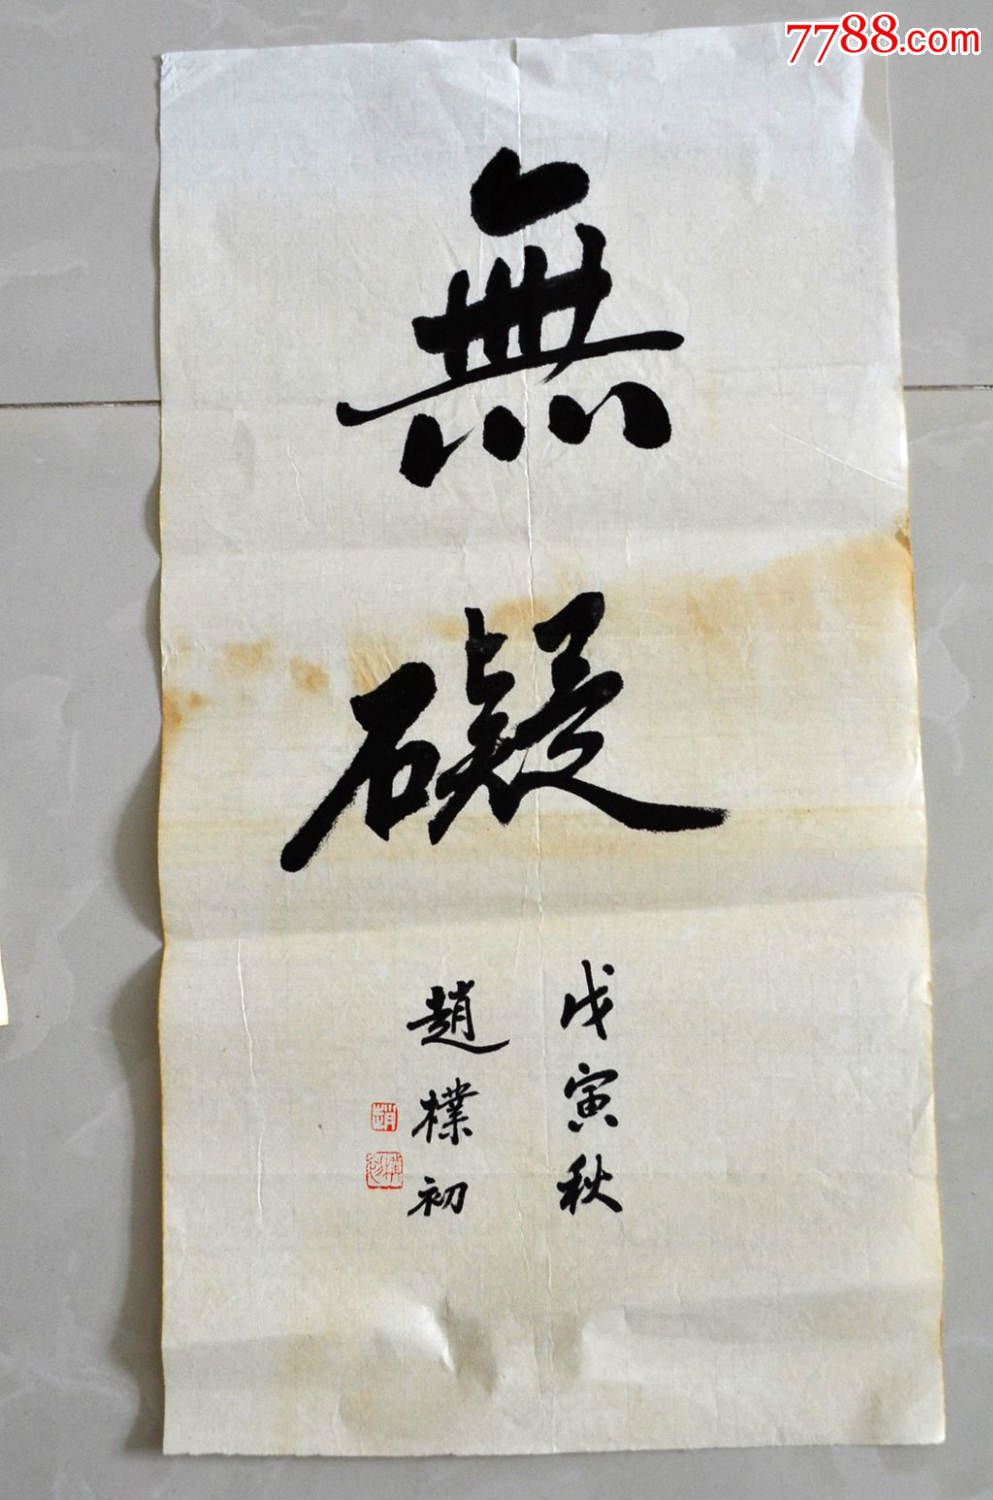 7788.com
無
礙
戊寅秋
趙樸初
趙